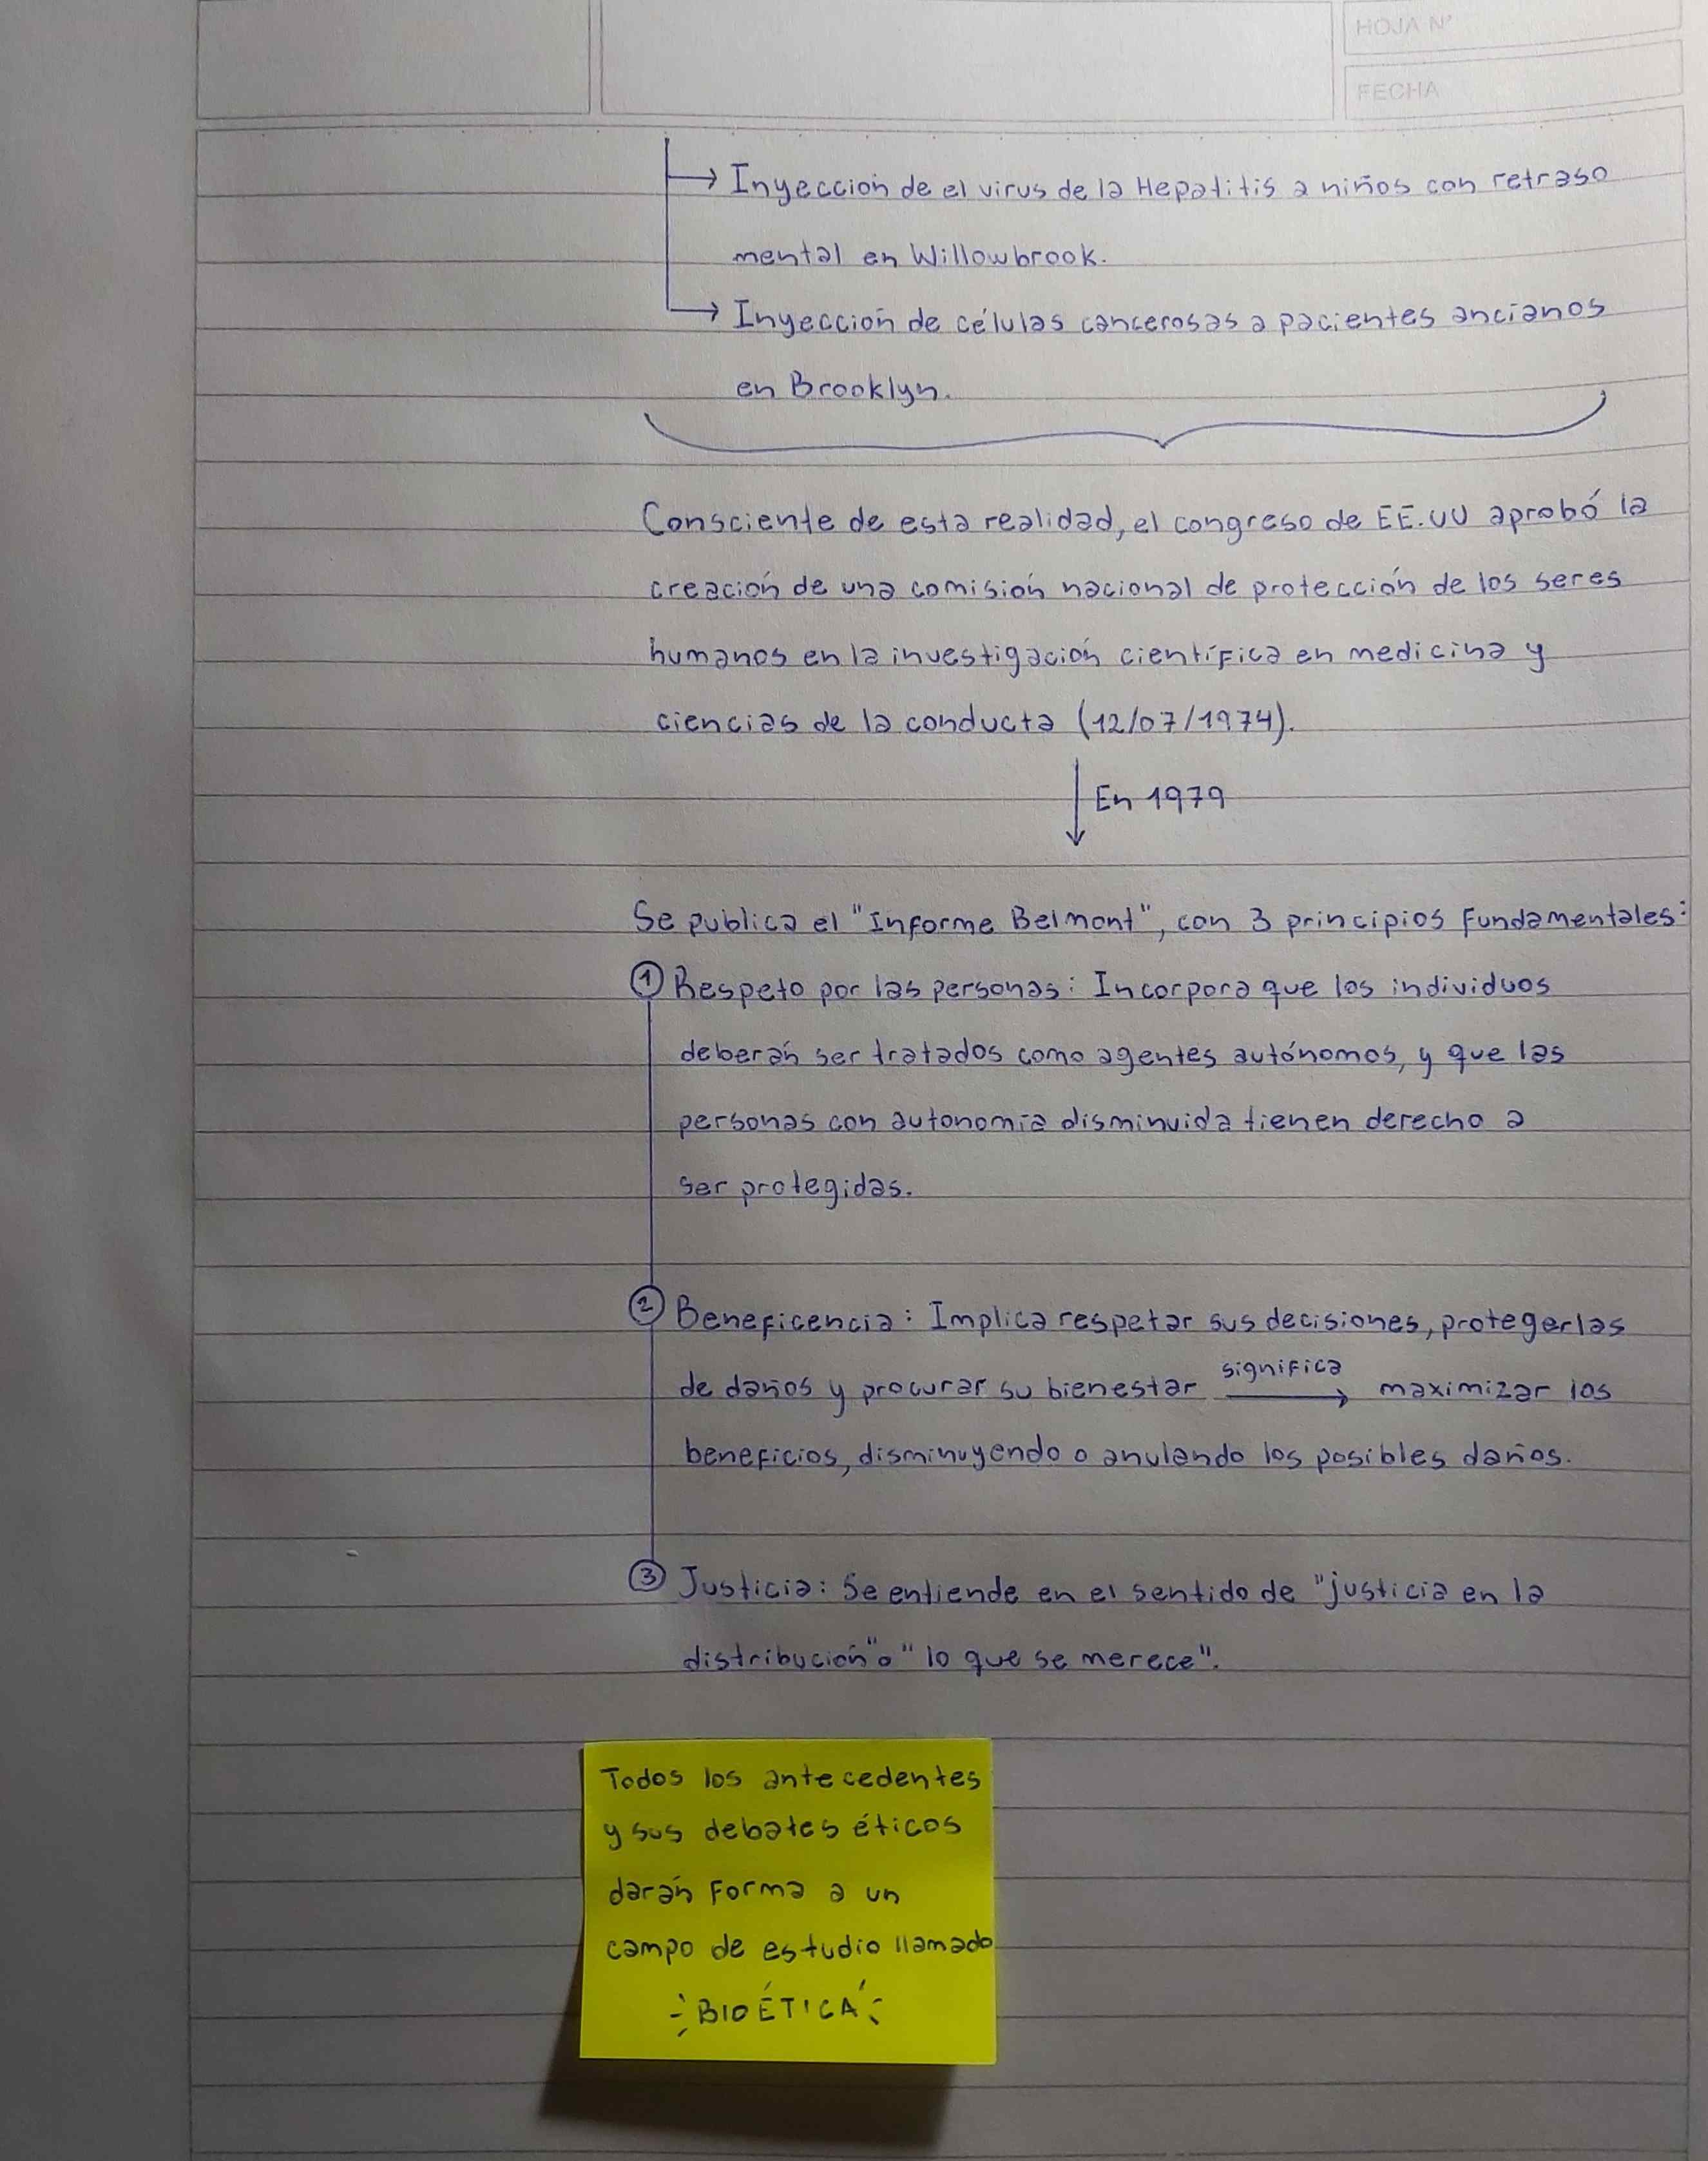 HOJA N°
FECHA
→ Inyección de el virus de la Hepatitis a niños con retraso
mental en Willowbrook.
→ Inyección de células cancerosas a pacientes ancianos
en Brooklyn.
Consciente de esta realidad, el congreso de EE.UU aprobó la
creación de una comisión nacional de protección de los seres
humanos en la investigación científica en medicina y
ciencias de la conducta (12/07/1974).
↓ En 1979
Se publica el "Informe Belmont", con 3 principios fundamentales:
① Respeto por las personas: Incorpora que los individuos
deberán ser tratados como agentes autónomos, y que las
personas con autonomía disminuida tienen derecho a
ser protegidas.
② Beneficencia: Implica respetar sus decisiones, protegerlas
de daños y procurar su bienestar significa → maximizar los
beneficios, disminuyendo o anulando los posibles daños.
③ Justicia: Se entiende en el sentido de "justicia en la
distribución" o "lo que se merece".
Todos los antecedentes
y sus debates éticos
darán forma a un
campo de estudio llamado
BIOÉTICA